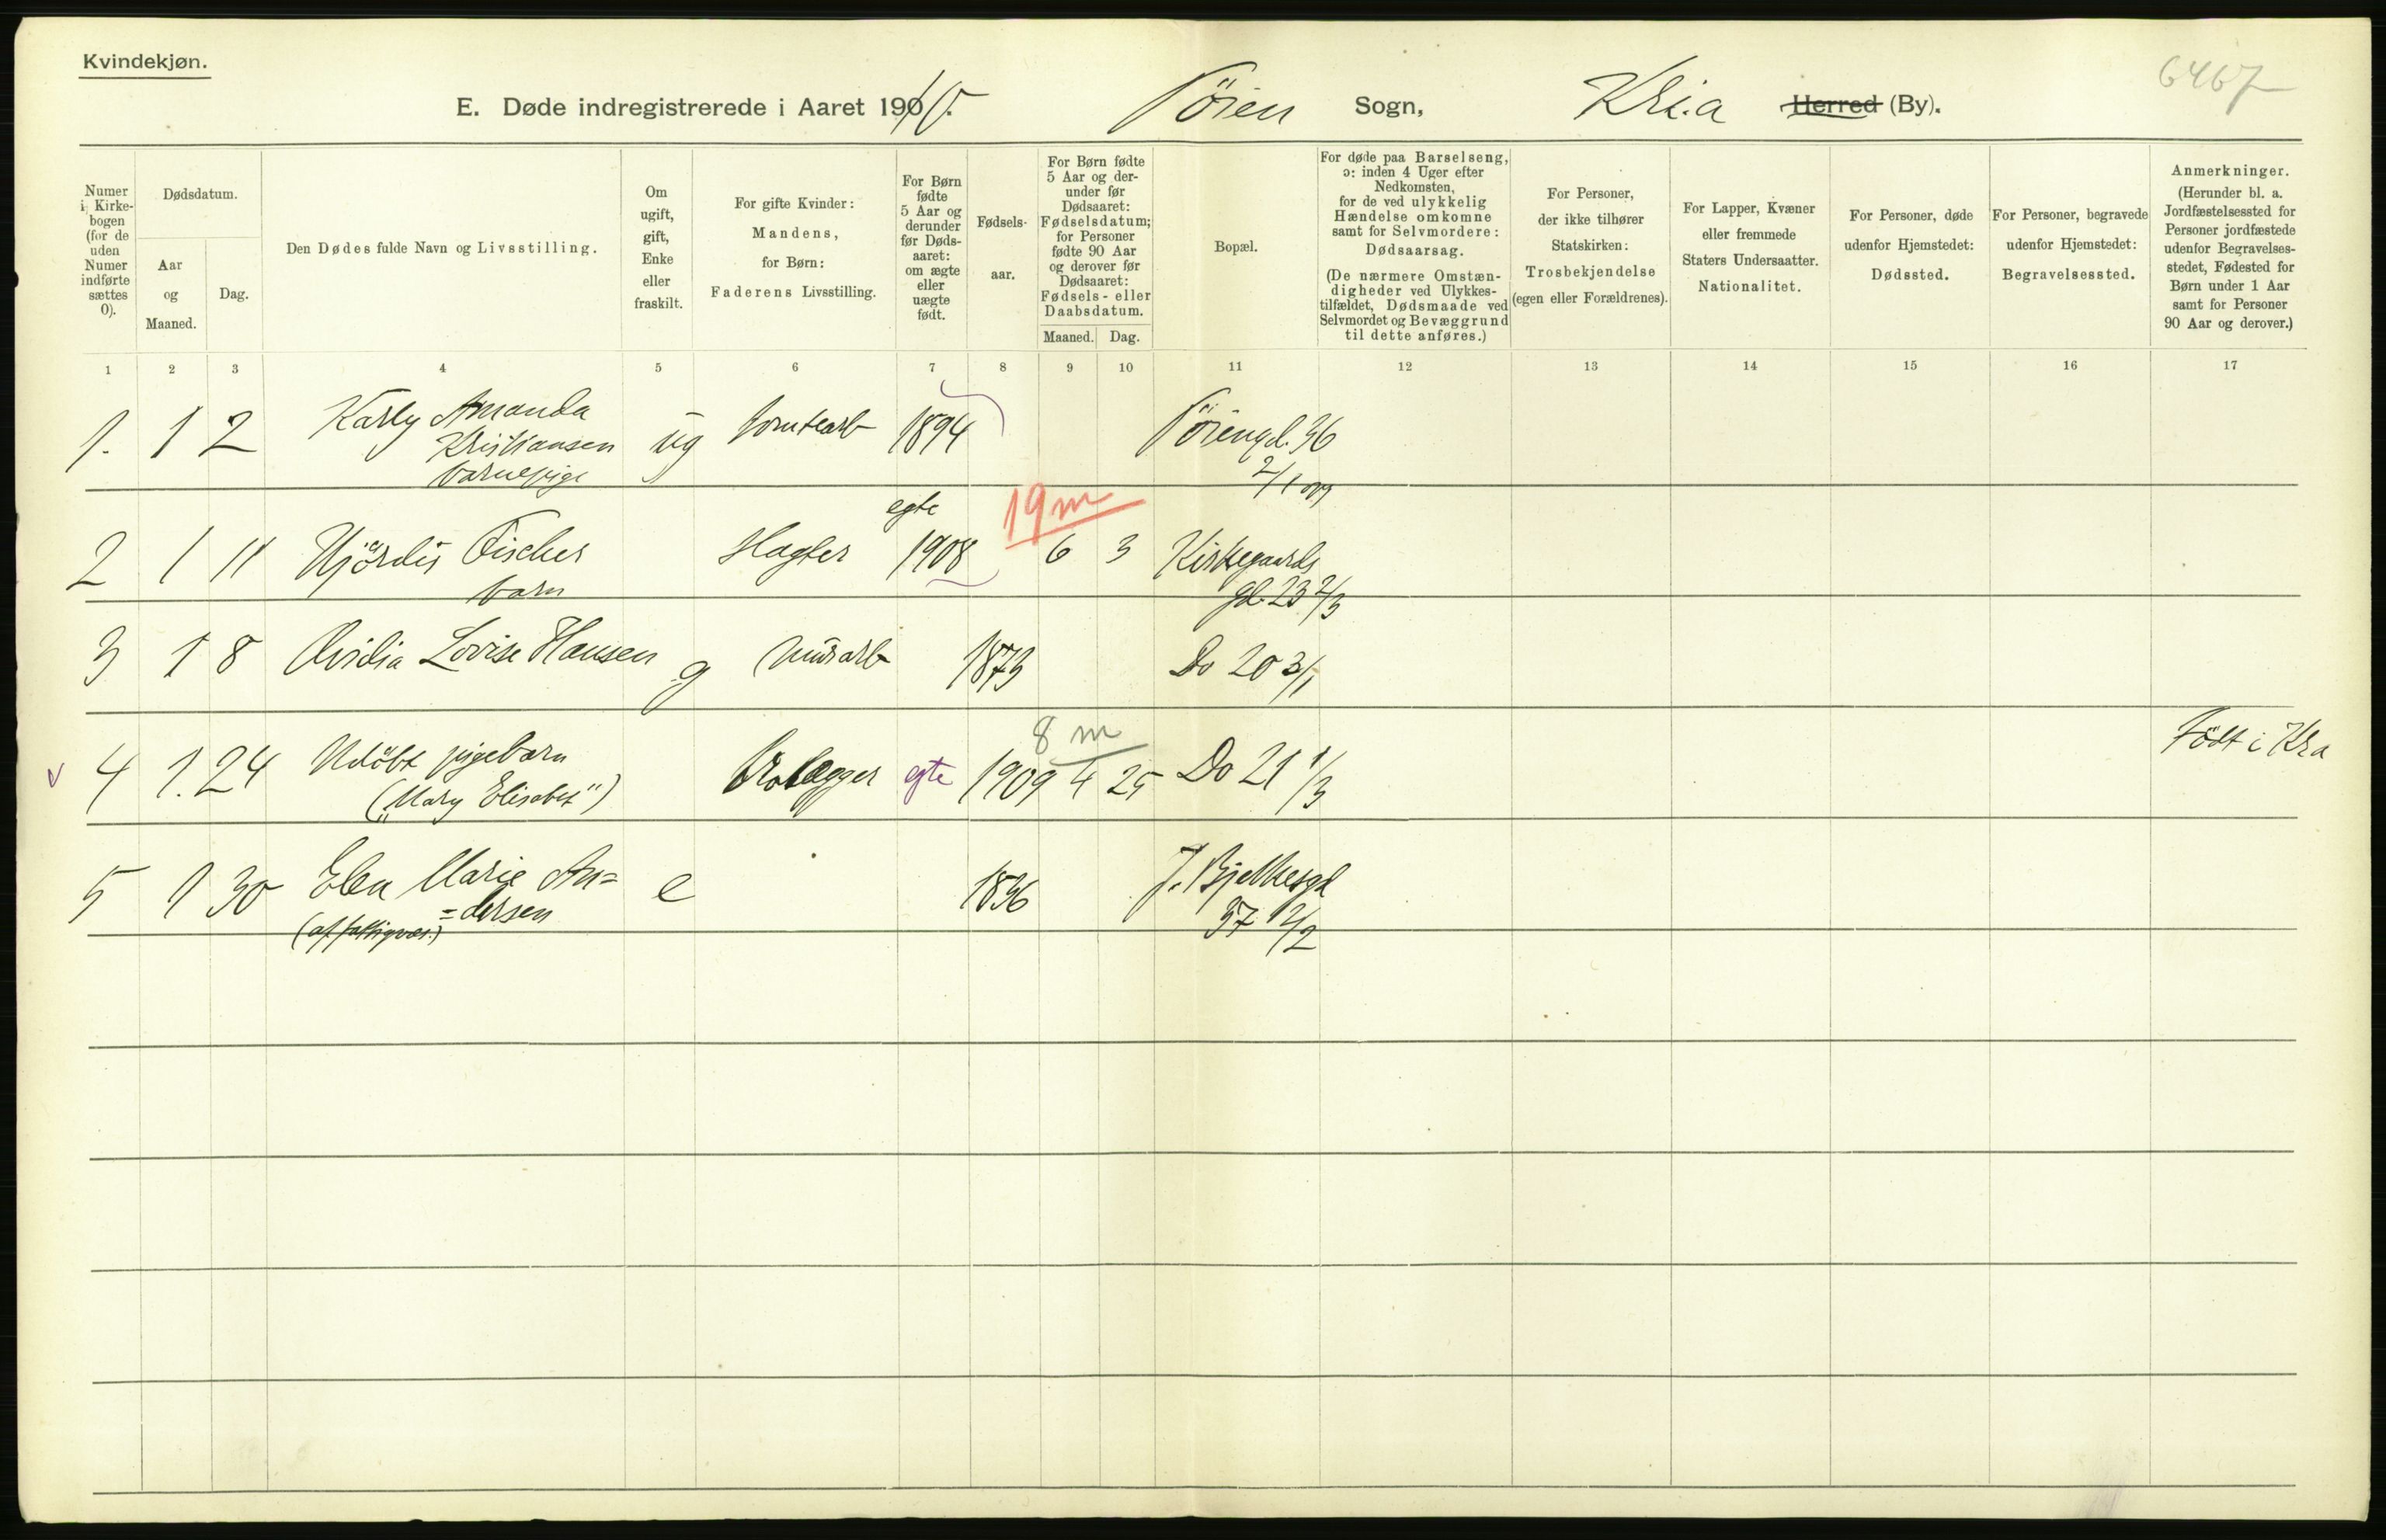 Kvindekjøn.
6467
E. Døde indregistrerede i Aaret 1910. Töien Sogn, Kr.i.a Herred (By).
Numer i Kirkebogen (for de uden Numer indførte sættes 0).
Dødsdatum.
Aar og Maaned.
Dag.
Den Dødes fulde Navn og Livsstilling.
Om ugift, gift, Enke eller fraskilt.
For gifte Kvinder: Mandens, for Børn: Faderens Livsstilling.
For Børn fødte 5 Aar og derunder før Dødsaaret: om ægte eller uægte født.
Fødselsaar.
For Børn fødte 5 Aar og derunder før Dødsaaret: Fødselsdatum; for Personer fødte 90 Aar og derover før Dødsaaret: Fødsels- eller Daabsdatum.
Maaned. Dag.
Bopæl.
For døde paa Barselseng, ɔ: inden 4 Uger efter Nedkomsten, for de ved ulykkelig Hændelse omkomne samt for Selvmordere: Dødsaarsag. (De nærmere Omstændigheder ved Ulykkestilfældet, Dødsmaade ved Selvmordet og Bevæggrund til dette anføres.)
For Personer, der ikke tilhører Statskirken: Trosbekjendelse (egen eller Forældrenes).
For Lapper, Kvæner eller fremmede Staters Undersaatter. Nationalitet.
For Personer, døde udenfor Hjemstedet: Dødssted.
For Personer, begravede udenfor Hjemstedet: Begravelsessted.
Anmerkninger. (Herunder bl. a. Jordfæstelsessted for Personer jordfæstede udenfor Begravelsesstedet, Fødested for Børn under 1 Aar samt for Personer 90 Aar og derover.)
1 2 3 4 5 6 7 8 9 10 11 12 13 14 15 16 17
1. 1 2 Karly Amanda ug tomtearb 1894 Töiengd. 36
Kristiansen
barnepige
19 m
egte
2 1 11 Hjördis Fischer Slagter 1908 6 3 Kirkegaards
barn gd. 23 2/3
3 1 8 Ovidia Lovise Hansen g Murarb 1873 Do 20 3/1
8 m
Födt i Kra
v 4 1. 24 Udöbt pigebarn Brolægger egte 1909 4 25 Do 21 1/3
("Mary Elisabet")
5 1 30 Elen Marie An= e 1836 J. Bjelkesgd
=dersen 37 12/2
(af fattigvæs.)